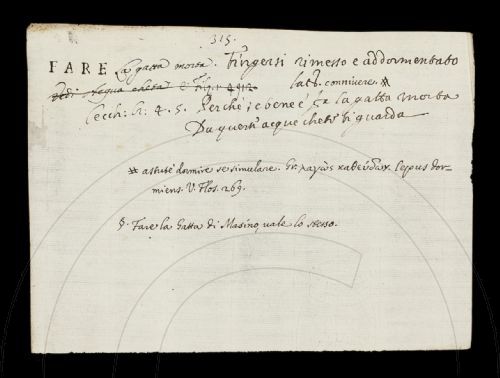 315.
FARE La gatta morta. Fingersi rimesso e addormentato
Vedi Acqua cheta Fig. 492 lat. connivere. ⁂
Cecch. 4. 5. Perchè, e bene è fa la gatta morta
Da questi acque cheti ti guarda
⁂ astutè dormire se simulare. Gr. λαγὼς καθεύδων. lepus dor-
miens. V. Flos. 269.
§. Fare la Gatta di Masino, vale lo stesso.